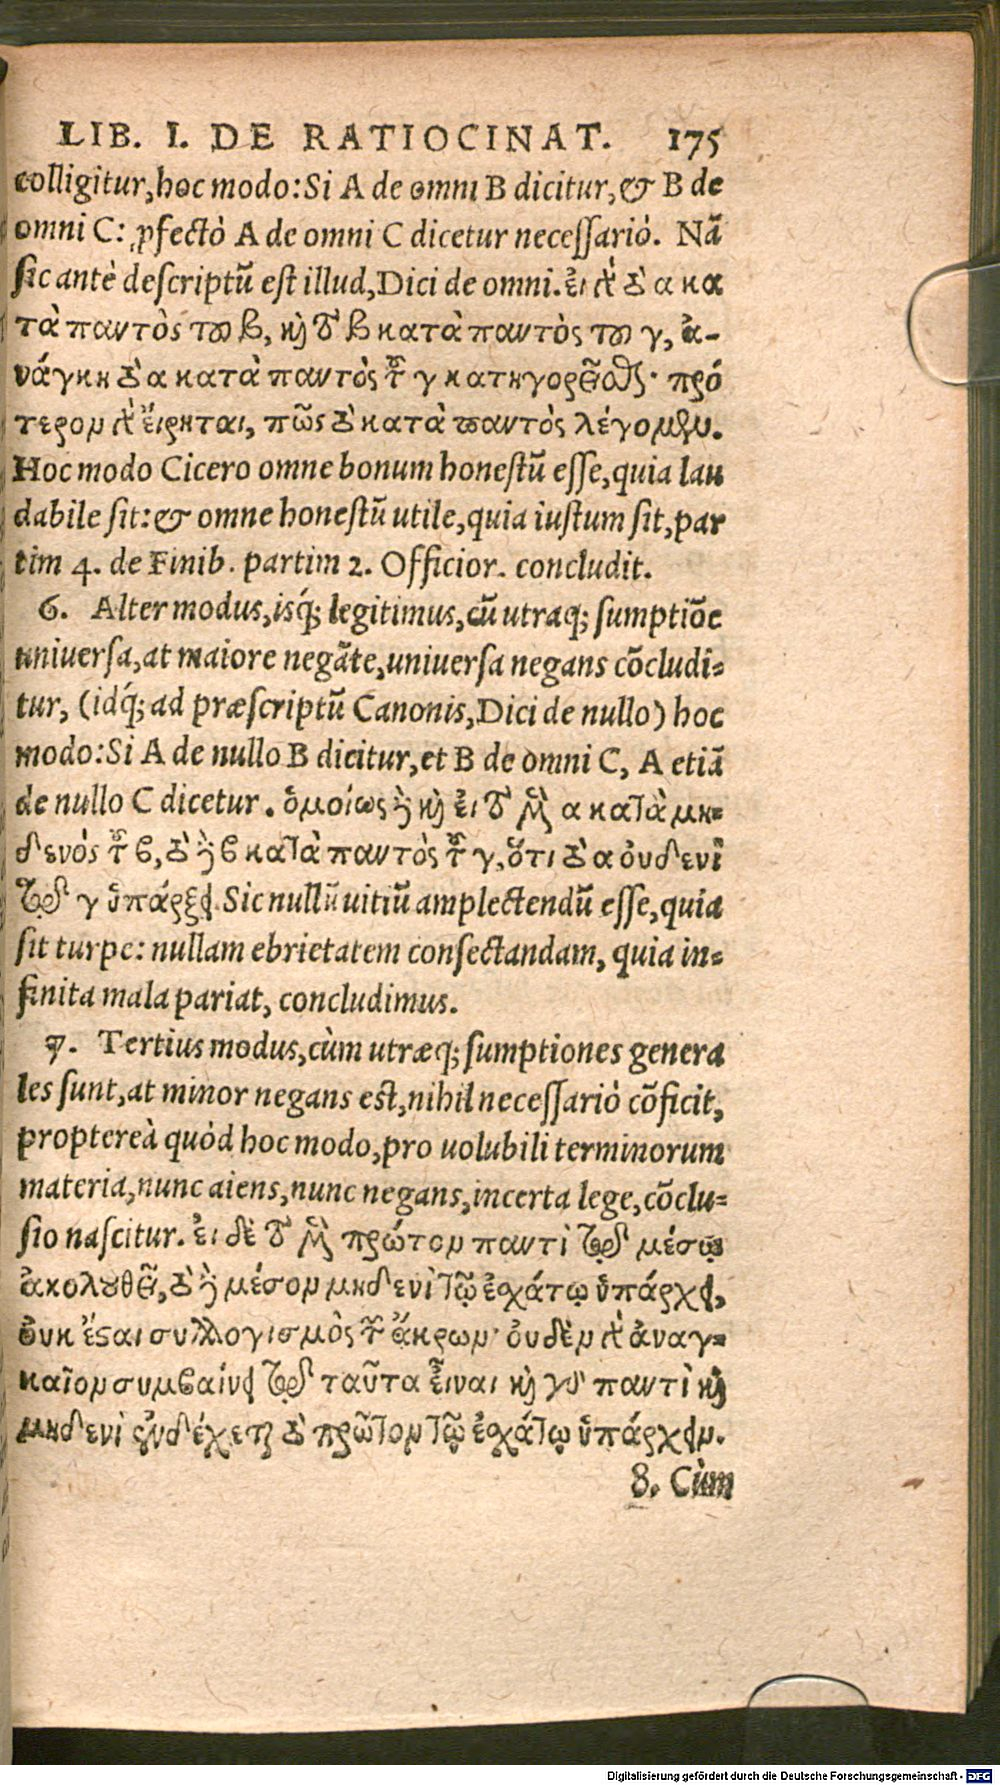 LIB. I. DE RATIOCINAT. 175
colligitur, hoc modo: Si A de omni B dicitur, & B de
omni C: ꝓfectò A de omni C dicetur necessariò. Nã
sic antè descriptũ est illud, Dici de omni. εἰ γὰ τὸ α κα
τὰ παντὸς τοῦ β, καὶ τὸ β κατὰ παντὸς τοῦ γ, ἀ-
νάγκη τὸ α κατὰ παντὸς τοῦ γ κατηγορεῖσθαι· πρό
τερον γὰρ εἴρηται, πῶς τὸ κατὰ παντὸς λέγομεν.
Hoc modo Cicero omne bonum honestũ esse, quia lau
dabile sit: & omne honestũ utile, quia iustum sit, par
tim 4. de Finib. partim 2. Officior. concludit.
6. Alter modus, isq́; legitimus, cũ utraq; sumptiõe
uniuersa, at maiore negãte, uniuersa negans cõcludi-
tur, (idq́; ad præscriptũ Canonis, Dici de nullo) hoc
modo: Si A de nullo B dicitur, et B de omni C, A etiã
de nullo C dicetur. ὁμοίως δὲ καὶ εἰ τὸ μὲν α κατὰ μη-
δενὸς τοῦ β, τὸ δὲ β κατὰ παντὸς τοῦ γ, ὅτι τὸ α οὐδενὶ
τῶν γ ὑπάρξει. Sic nullũ uitiũ amplectendũ esse, quia
sit turpe: nullam ebrietatem consectandam, quia in-
finita mala pariat, concludimus.
7. Tertius modus, cùm utræq; sumptiones genera
les sunt, at minor negans est, nihil necessariò cõficit,
propterea quòd hoc modo, pro uolubili terminorum
materia, nunc aiens, nunc negans, incerta lege, cõclu-
sio nascitur. εἰ δὲ τὸ μὲν πρῶτον παντὶ τῷ μέσῳ
ἀκολουθεῖ, τὸ δὲ μέσον μηδενὶ τῷ ἐσχάτῳ ὑπάρχει,
οὐκ ἔσται συλλογισμὸς τῶν ἄκρων· οὐδὲν γὰρ ἀναγ-
καῖον συμβαίνει τῷ ταῦτα εἶναι· καὶ γὰρ παντὶ καὶ
μηδενὶ ἐνδέχεται τὸ πρῶτον τῷ ἐσχάτῳ ὑπάρχειν.
8. Cùm
Digitalisierung gefördert durch die Deutsche Forschungsgemeinschaft - DFG